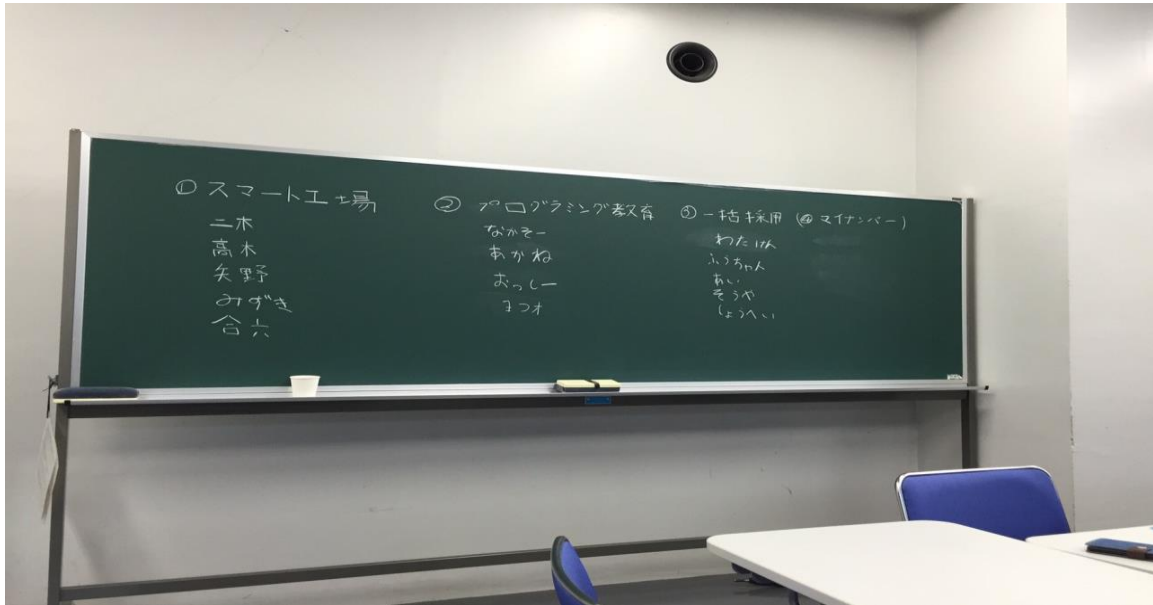 ① スマート工場
二木
高木
矢野
みずき
合六
② プログラミング教育
なかそー
あかね
おっしー
まつオ
③ 一括採用 (マイナンバー)
わたけん
ふうちゃん
あい
そうや
しょうへい